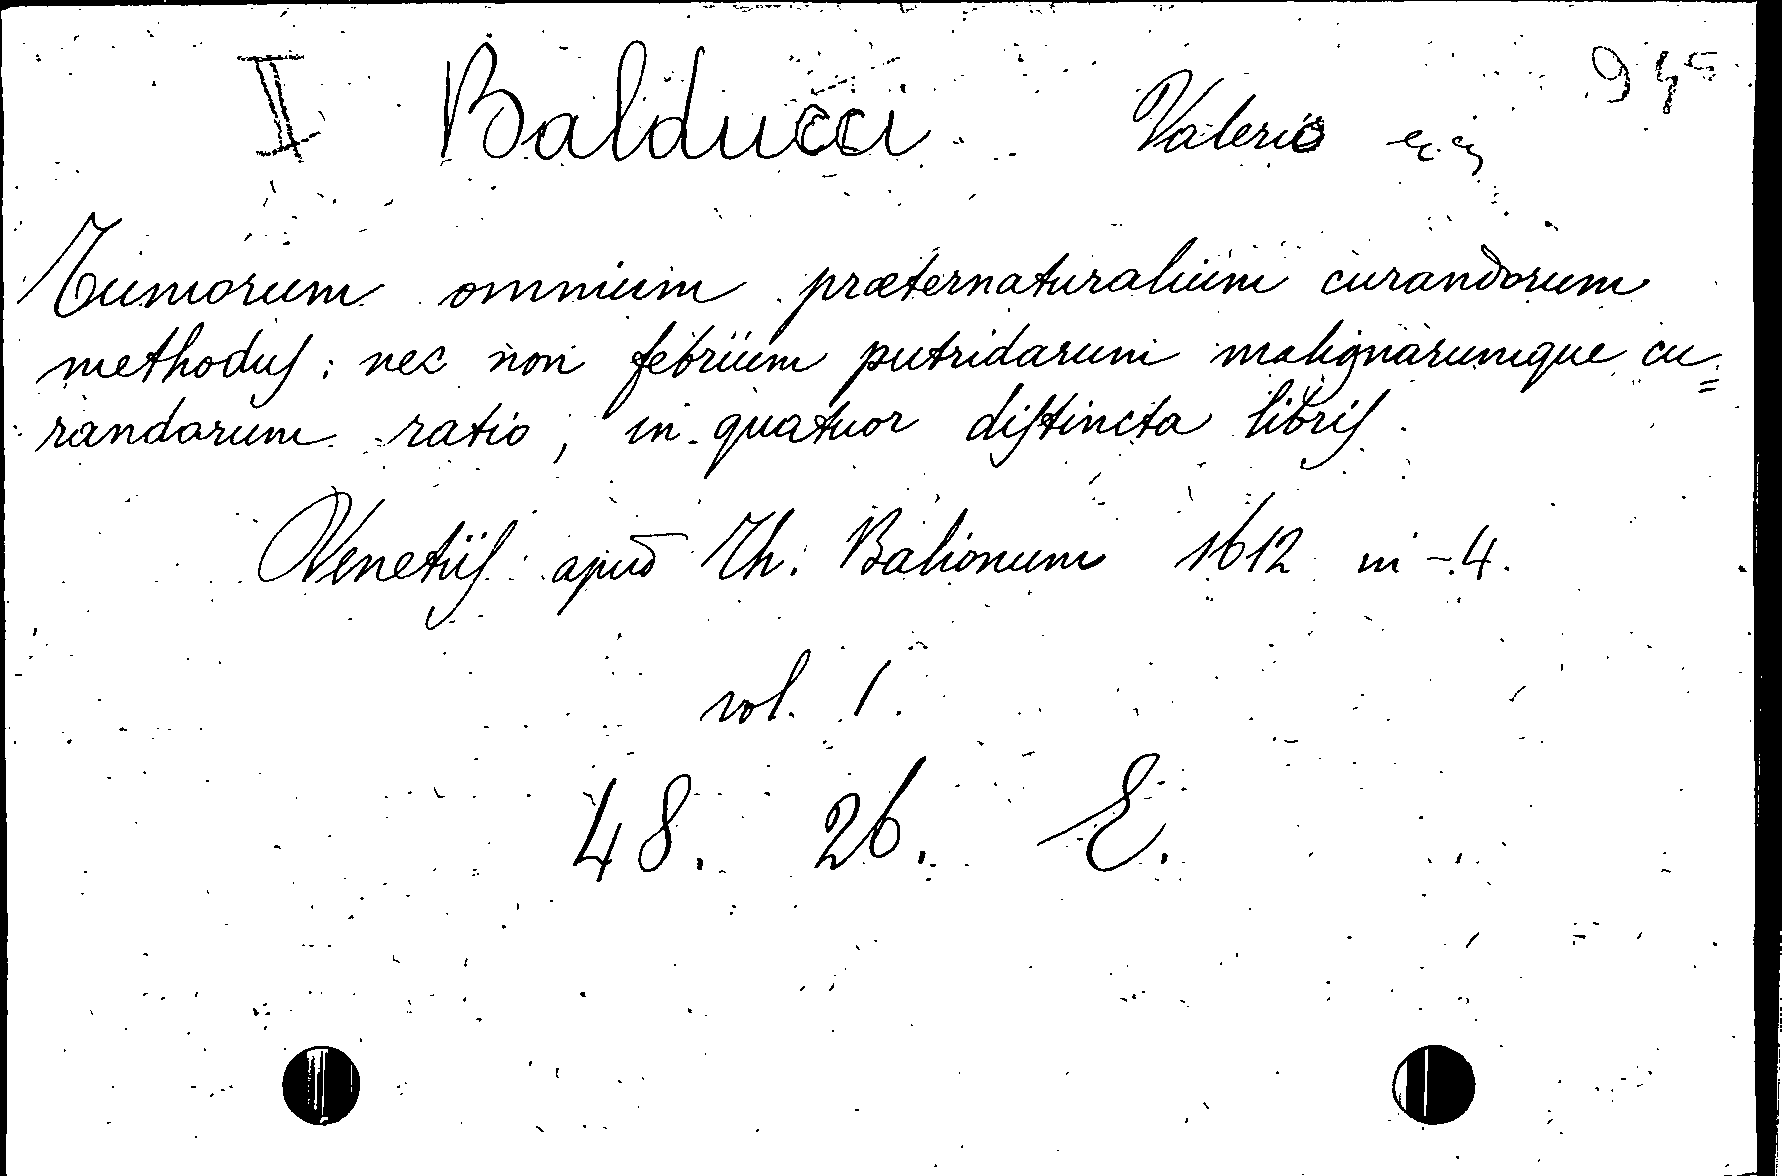 II Balducci Valerio 945
Tumorum omnium præternaturalium curandorum
methodus : nec non febrium putridarum malignarumque cu=
randarum ratio , in quatuor distincta libris.
Venetiis apud Th. Balionum 1612 in-4.
vol. 1.
48. 26. E.